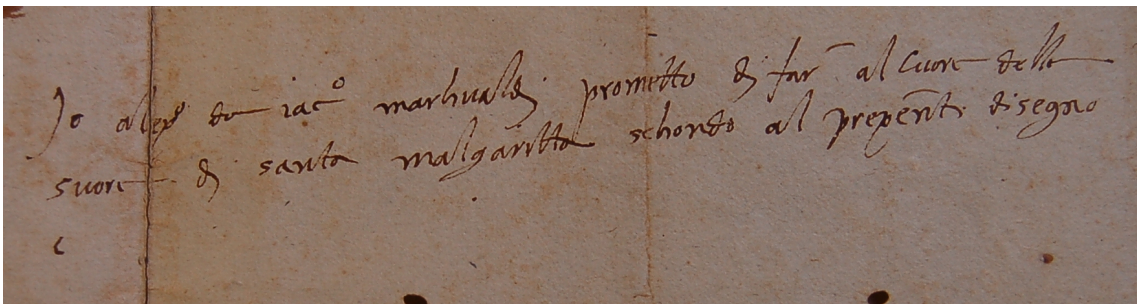 Jo alexo de iaco marhualdi prometto di far al cuore delle
suore di santa malgaritta sehondo al prexente disegno
c